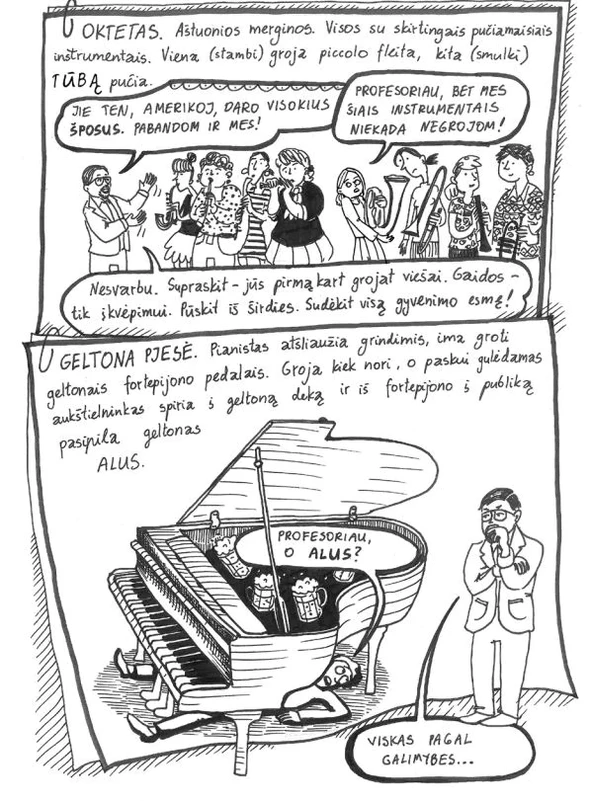 OKTETAS. Aštuonios merginos. Visos su skirtingais pučiamaisiais
instrumentais. Viena (stambi) groja piccolo fleita, kita (smulki)
TŪBĄ pučia.
JIE TEN, AMERIKOJ, DARO VISOKIUS
ŠPOSUS. PABANDOM IR MES!
PROFESORIAU, BET MES
ŠIAIS INSTRUMENTAIS
NIEKADA NEGROJOM!
Nesvarbu. Supraskit - jūs pirmą kart grojat viešai. Gaidos -
tik įkvėpimui. Pūskit iš širdies. Sudėkit visą gyvenimo esmę!
GELTONA PJESĖ. Pianistas atšliaužia grindimis, ima groti
geltonais fortepijono pedalais. Groja kiek nori, o paskui gulėdamas
aukštielninkas spiria į geltoną deką ir iš fortepijono į publiką
pasipila geltonas
ALUS.
PROFESORIAU,
O ALUS?
VISKAS PAGAL
GALIMYBES...